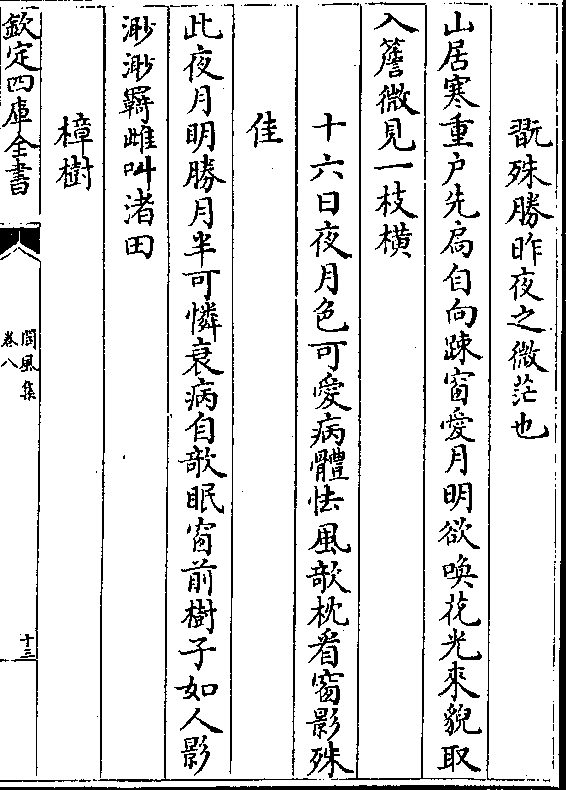 翫殊勝昨夜之微茫也
山居寒重户先扃自向踈窗愛月明欲喚花光來貌取
入簷微見一枝橫
十六日夜月色可愛病體怯風欹枕看窗影殊
佳
此夜月明勝月半可憐衰病自欹眠窗前樹子如人影
渺渺羇雌叫渚田
樟樹
欽定四庫全書
閬風集
卷八
十三